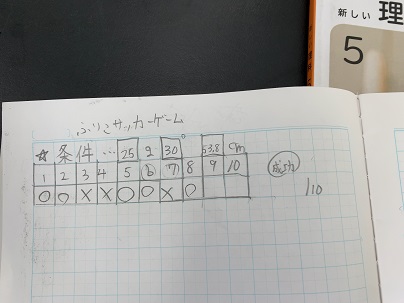 新しい 理
5
ふりこサッカーゲーム
☆ 条件… 25 g 30° 53.8 cm
1 2 3 4 5 6 7 8 9 10 成功
○ ○ × × ○ ○ × ○ /10